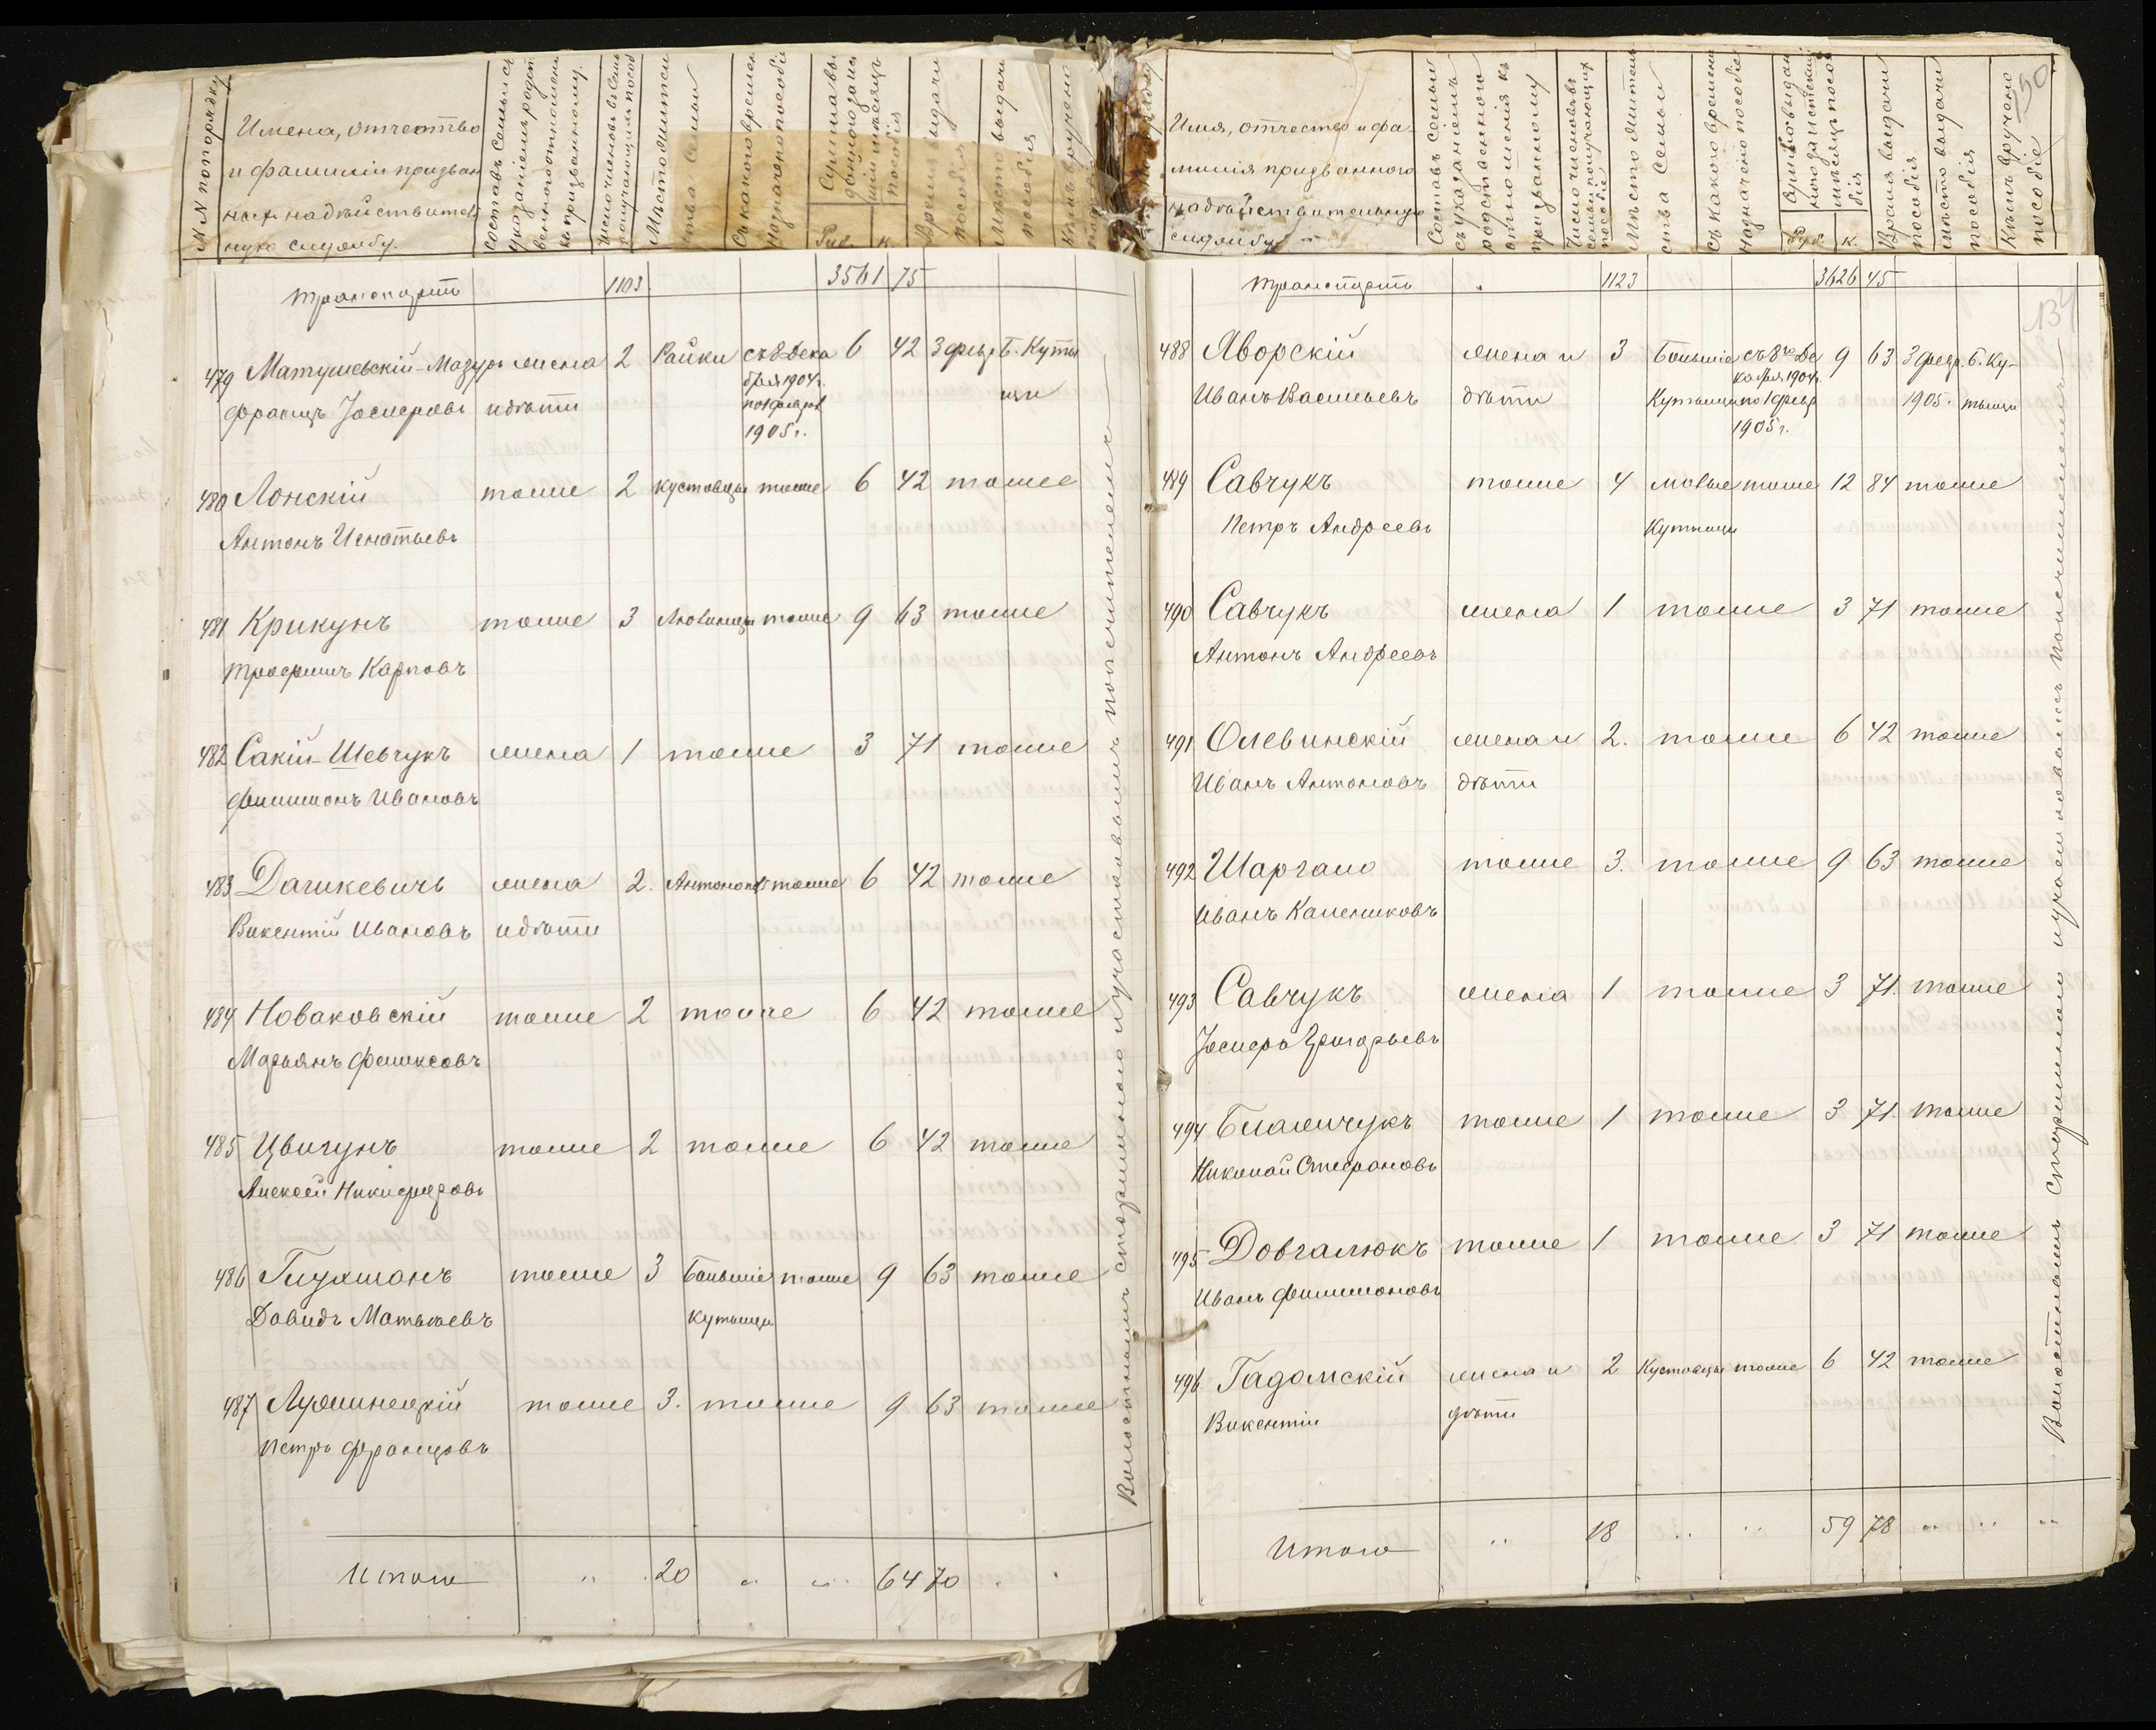 №№ по порядку
Имена, отчество
и фамиліи призван
ныхъ на дѣйствитель
ную службу.
Составъ Семьи съ
указаніемъ родст
веннаго отношенія
къ призванному.
Число членовъ въ семьѣ
получающихъ пособ
Мѣсто жительства
Семьи
Съ какого времени
назначено пособіе
Сумма вы
даннаго за мѣсяцъ
пособія
Руб. к.
Время выдачи
пособія
Мѣсто выдачи
пособія
Кѣмъ вручено
Транспортъ 1103 3561 75
479 Матушевскій-Мазуръ жена 2 Райки съ 8 Дека 6 42 3 февр. Б. Куты
бря 1904 г.
Францъ Іосифовъ и дѣти по 1 февр. щи
1905 г.
480 Лонскій тоже 2 Кустовцы тоже 6 42 тоже
Антонъ Игнатьевъ
481 Крикунъ тоже 3 тоже 9 63 тоже
Трофимъ Карповъ
482 Сакій-Шевчукъ жена 1 тоже 3 71 тоже
Филимонъ Ивановъ
483 Дашкевичъ жена 2. тоже 6 42 тоже
Викентій Ивановъ и дѣти
484 Новаковскій тоже 2 тоже 6 42 тоже
Марьянъ Феликсовъ
485 Цвигунъ тоже 2 тоже 6 42 тоже
Алексѣй Никифоровъ
486 Глухманъ тоже 3 Большіе тоже 9 63 тоже
Давидъ Матвѣевъ Кутыщи
487 тоже 3. тоже 9 63 тоже
Петръ Францовъ
Итого " 20 " " 64 70
Волостнымъ старшиною и участковымъ попечителемъ
Имя, отчество и фа
милія призваннаго
на дѣйствительную
службу
Составъ семьи
съ указаніемъ
родственнаго
отношенія къ
призванному
Число членовъ въ
семьѣ получающихъ
пособіе
Мѣсто житель
ства Семьи
Съ какого времени
назначено пособіе
Сумма выдан
наго за
мѣсяцъ посо
бія
Руб. к.
Время выдачи
пособія
Мѣсто выдачи
пособія
Кѣмъ вручено
пособіе
150
134
Транспортъ " 1123 3626 45
488 Яворскій жена и 3 Большіе съ 8го Де 9 63 3 февр. Б. Ку-
кабря 1904 г.
Иванъ Васильевъ дѣти Кутыщи по 1 февр. 1905. тыщи
1905 г.
489 Савчукъ тоже 4 Малые тоже 12 84 тоже
Петръ Андреевъ Кутыщи
490 Савчукъ жена 1 тоже 3 71 тоже
Антонъ Андреевъ
491 Олевинскій жена и 2. тоже 6 42 тоже
Иванъ Антоновъ дѣти
492 Шаргало тоже 3. тоже 9 63 тоже
Иванъ Калениковъ
493 Савчукъ жена 1 тоже 3 71. тоже
Іосифъ Григорьевъ
494 тоже 1 тоже 3 71. тоже
Николай Стефановъ
495 Довгалюкъ тоже 1 тоже 3 71 тоже
Иванъ Филимоновъ
496 Гадомскій жена и 2 Кустовцы тоже 6 42 тоже
Викентій дѣти
Итого " 18 " " 59 78 " " "
Волостнымъ Старшиною и участковымъ попечителемъ